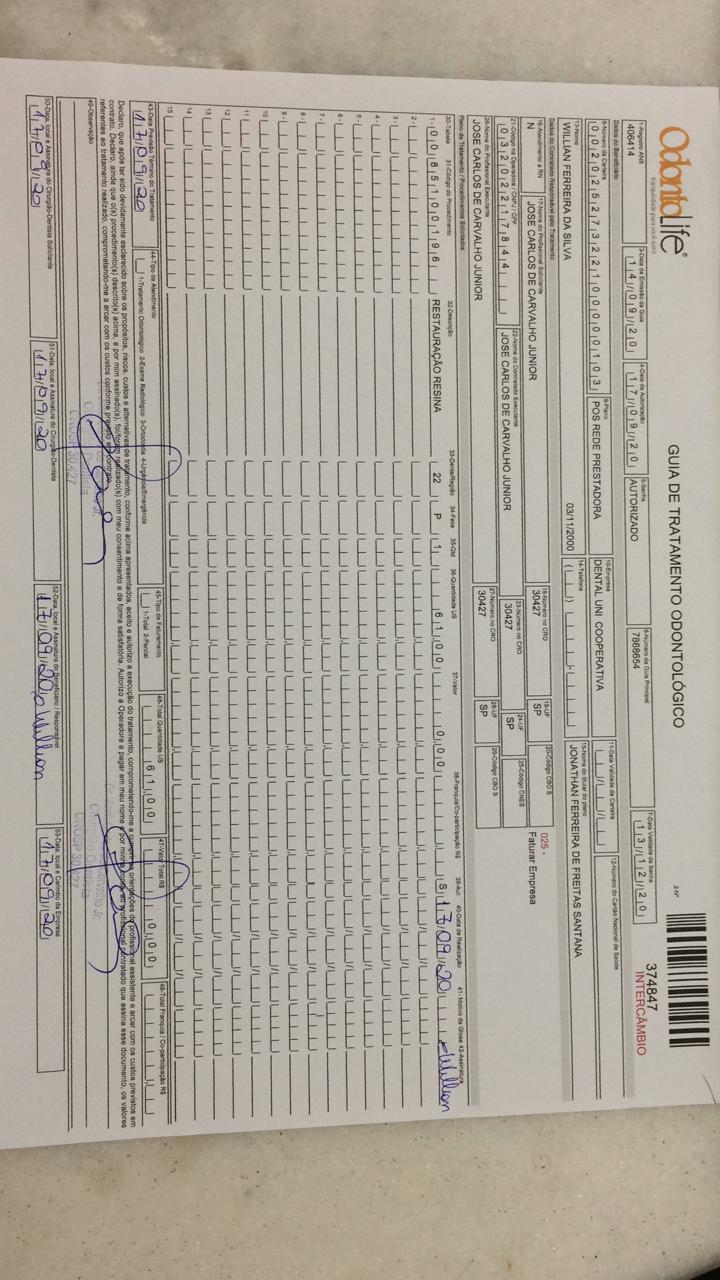 OdontoLife®
tranquilidade para você sorrir
GUIA DE TRATAMENTO ODONTOLÓGICO
2-Nº
374847
INTERCÂMBIO
1-Registro ANS
406414
3-Data de Emissão da Guia
14/09/20
4-Data de Autorização
17/09/20
5-Senha
AUTORIZADO
6-Número da Guia Principal
7868654
7-Data Validade da Senha
13/12/20
Dados do Beneficiário
8-Número da Carteira
9-Plano
POS REDE PRESTADORA
10-Empresa
DENTAL UNI COOPERATIVA
11-Data Validade da Carteira
12-Número do Cartão Nacional de Saúde
13-Nome
WILLIAN FERREIRA DA SILVA
03/11/2000
14-Telefone
15-Nome do titular do plano
JONATHAN FERREIRA DE FREITAS SANTANA
Dados do Contratado Responsável pelo Tratamento
16-Atendimento a RN
N
17-Nome do Profissional Solicitante
JOSE CARLOS DE CARVALHO JUNIOR
18-Número no CRO
30427
19-UF
SP
20-Código CBO S
025 -
Faturar Empresa
21-Código na Operadora / CNPJ / CPF
03202217844
22-Nome do Contratado Executante
JOSE CARLOS DE CARVALHO JUNIOR
23-Número no CRO
30427
24-UF
SP
25-Código CNES
26-Nome do Profissional Executante
JOSE CARLOS DE CARVALHO JUNIOR
27-Número no CRO
30427
28-UF
SP
29-Código CBO S
Plano de Tratamento / Procedimentos Solicitados
30-Tabela 31-Código do Procedimento 32-Descrição 33-Dente/Região 34-Face 35-Qtd 36-Quantidade US 37-Valor 38-Franquia/Co-participação R$ 39-Aut 40-Data de Realização 41- Motivo da Glosa 42-Assinatura
1- 00 85100196 RESTAURAÇÃO RESINA 22 P 1 61,00 0,00 S 17/09/20 Willian
2-
3-
4-
5-
6-
7-
8-
9-
10
11
12
13
14
15
43-Data Previsão Término do Tratamento
17/09/20
44-Tipo de Atendimento
1-Tratamento Odontológico 2-Exame Radiológico 3-Ortodontia 4-Urgência/Emergência
45-Tipo de Faturamento
1-Total 2-Parcial
46-Total Quantidade US
61,00
47-Valor Total R$
0,00
48-Total Franquia / Co-participação R$
Declaro, que após ter sido devidamente esclarecido sobre os propósitos, riscos, custos e alternativas de tratamento, conforme acima apresentados, aceito e autorizo a execução do tratamento, comprometendo-me a cumprir as orientações do profissional assistente e arcar com os custos previstos em
contrato. Declaro, ainda que o(s) procedimento(s) descrito(s) acima, e por mim assinado(s), foi/foram realizado(s) com meu consentimento e de forma satisfatória. Autorizo a Operadora a pagar em meu nome e por minha conta, ao profissional contratado que assina esse documento, os valores
referentes ao tratamento realizado, comprometendo-me a arcar com os custos conforme previsto em contrato.
49-Observação
CROSP 30427
CROSP 30427
50-Data, local e Assinatura do Cirurgião-Dentista Solicitante
17/09/20
51-Data, local e Assinatura do Cirurgião-Dentista
17/09/20
52-Data, local e Assinatura do Beneficiário / Responsável
17/09/20 Willian
53-Data, local e Carimbo da Empresa
17/09/20